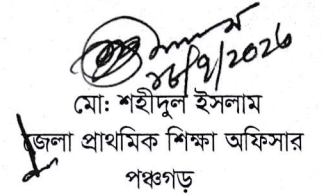 মো: শহীদুল ইসলাম
জেলা প্রাথমিক শিক্ষা অফিসার
পঞ্চগড়